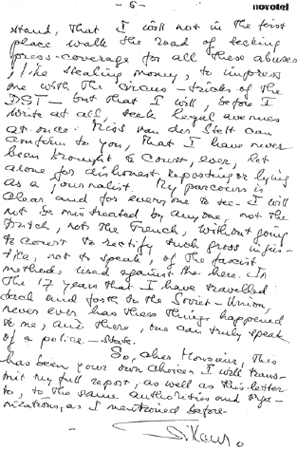 - 6 -
novotel
stand, that I will not in the first
place walk the road of seeking
press-coverage for all these abuses
, like stealing money, to impress
one with the circus-tricks of the
DST - but that I will, before I
write at all, seek legal avenues
at once. Miss van der Stelt can
confirm to you, that I have never
been brought to Court, ever, let
alone for dishonest reposting or lying
as a journalist. My parcours is
clear and for everyone to see. I will
not be mistreated by anyone, not the
Dutch, not the French, without going
to court to rectify such gross injus-
tice, not to speak, of the fascist
methods used against me here. In
the 17 years that I have travelled
back and forth to the Soviet-Union,
never ever has these things happened
to me, and there, one can truly speak
of a police-state.
So, cher Monsieur, this
has been your own choice. I will trans-
mit my full report, as well as this letter
to, to the same authorities and orga-
nisations, as I mentioned before.